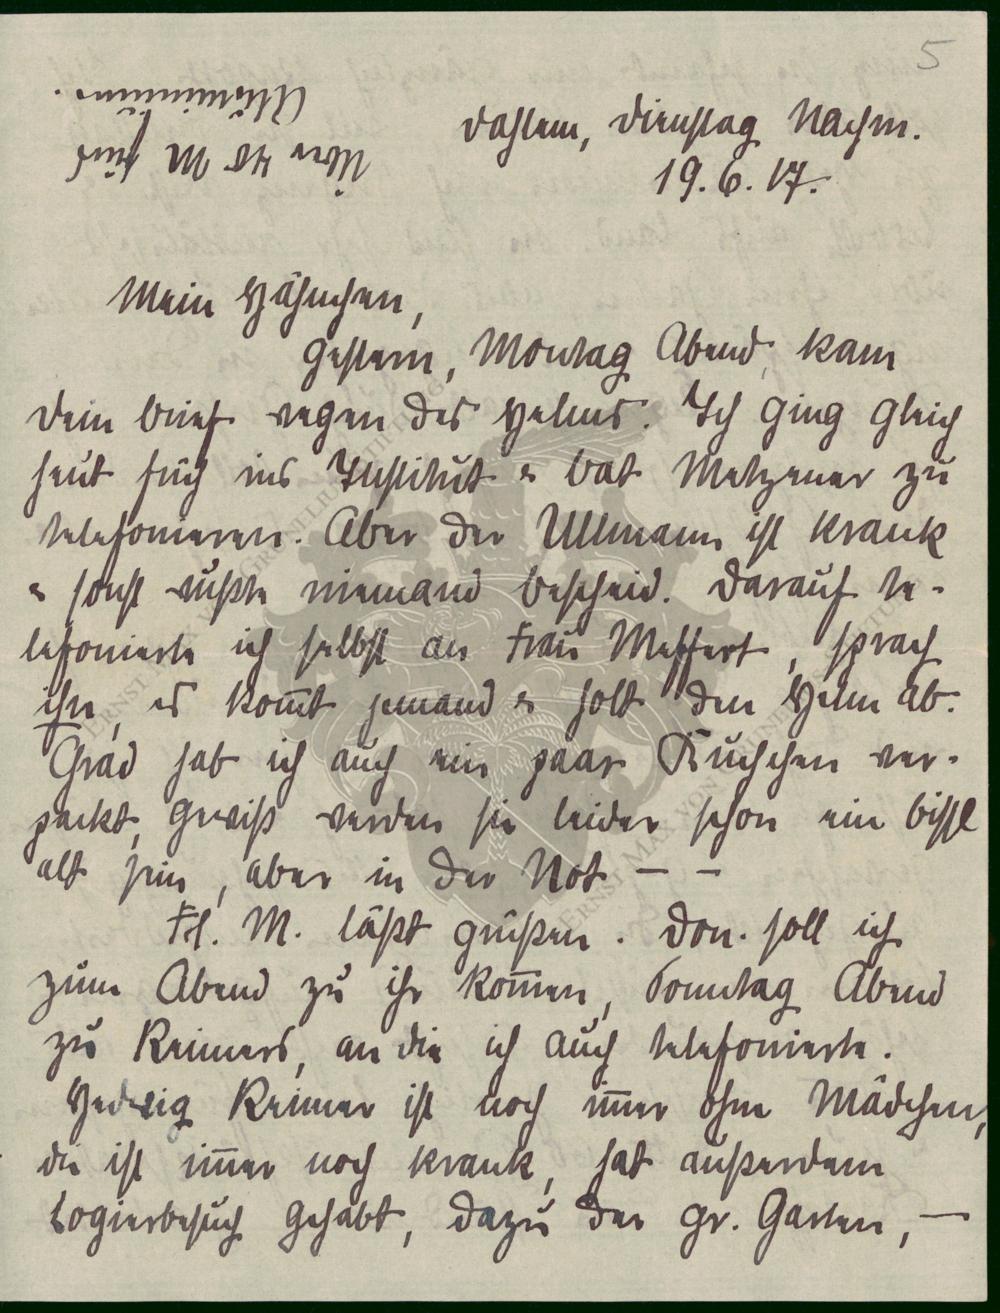 5
Über 40 M für
Aluminium.
Dahlem, Dienstag Nachm.
19. 6. 17.
Mein Hähnchen,
Gestern, Montag Abend, kam
Dein Brief wegen des Helms. Ich ging gleich
heut früh ins Institut & bat Metzener zu
telefonieren. Aber der Ullmann ist krank
& sonst wußte niemand Bescheid. Darauf te-
lefonierte ich selbst an Frau Meffert, sprach
ihn, es kom̅t jemand & holt den Helm ab.
Grad hab ich auch ein paar Kuchchen ver-
packt, gewiß werden sie leider schon ein bissl
alt sein, aber in der Not — —
Frl. M. läßt grüßen. Don. soll ich
zum Abend zu ihr kom̅en, Sonntag Abend
zu Reimers, an die ich auch telefonierte.
Hedwig Reimer ist noch im̅er ohne Mädchen,
die ist im̅er noch krank, hat außerdem
Logierbesuch gehabt, dazu der gr. Garten, —
ERNST MAX VON GRUNELIUS-STIFTUNG
ERNST MAX VON GRUNELIUS-STIFTUNG